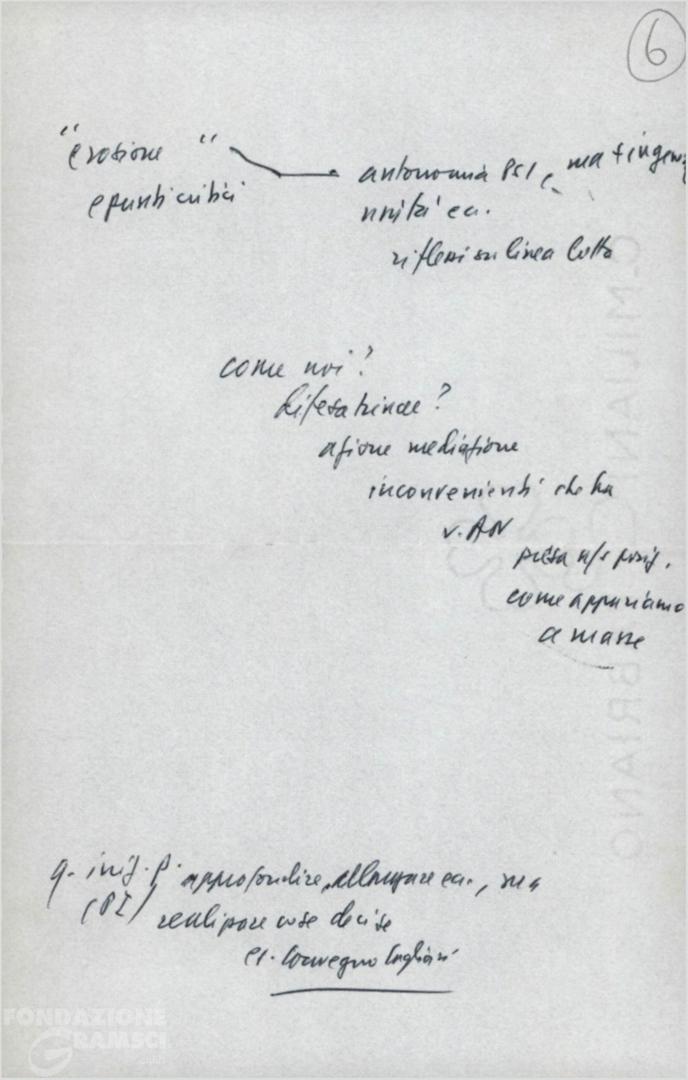 6
"erosione" — autonomia PSI, ma
e punti critici
unità ec.
riflessi su linea lotta
come noi?
difesa trincee?
azione mediazione
inconvenienti che ha
v. AN
presa posiz.
come appariamo
a masse
q. iniz. p. approfondire, ec., ma
realizzare cose decise
es. Convegno Cagliari
FONDAZIONE
GRAMSCI